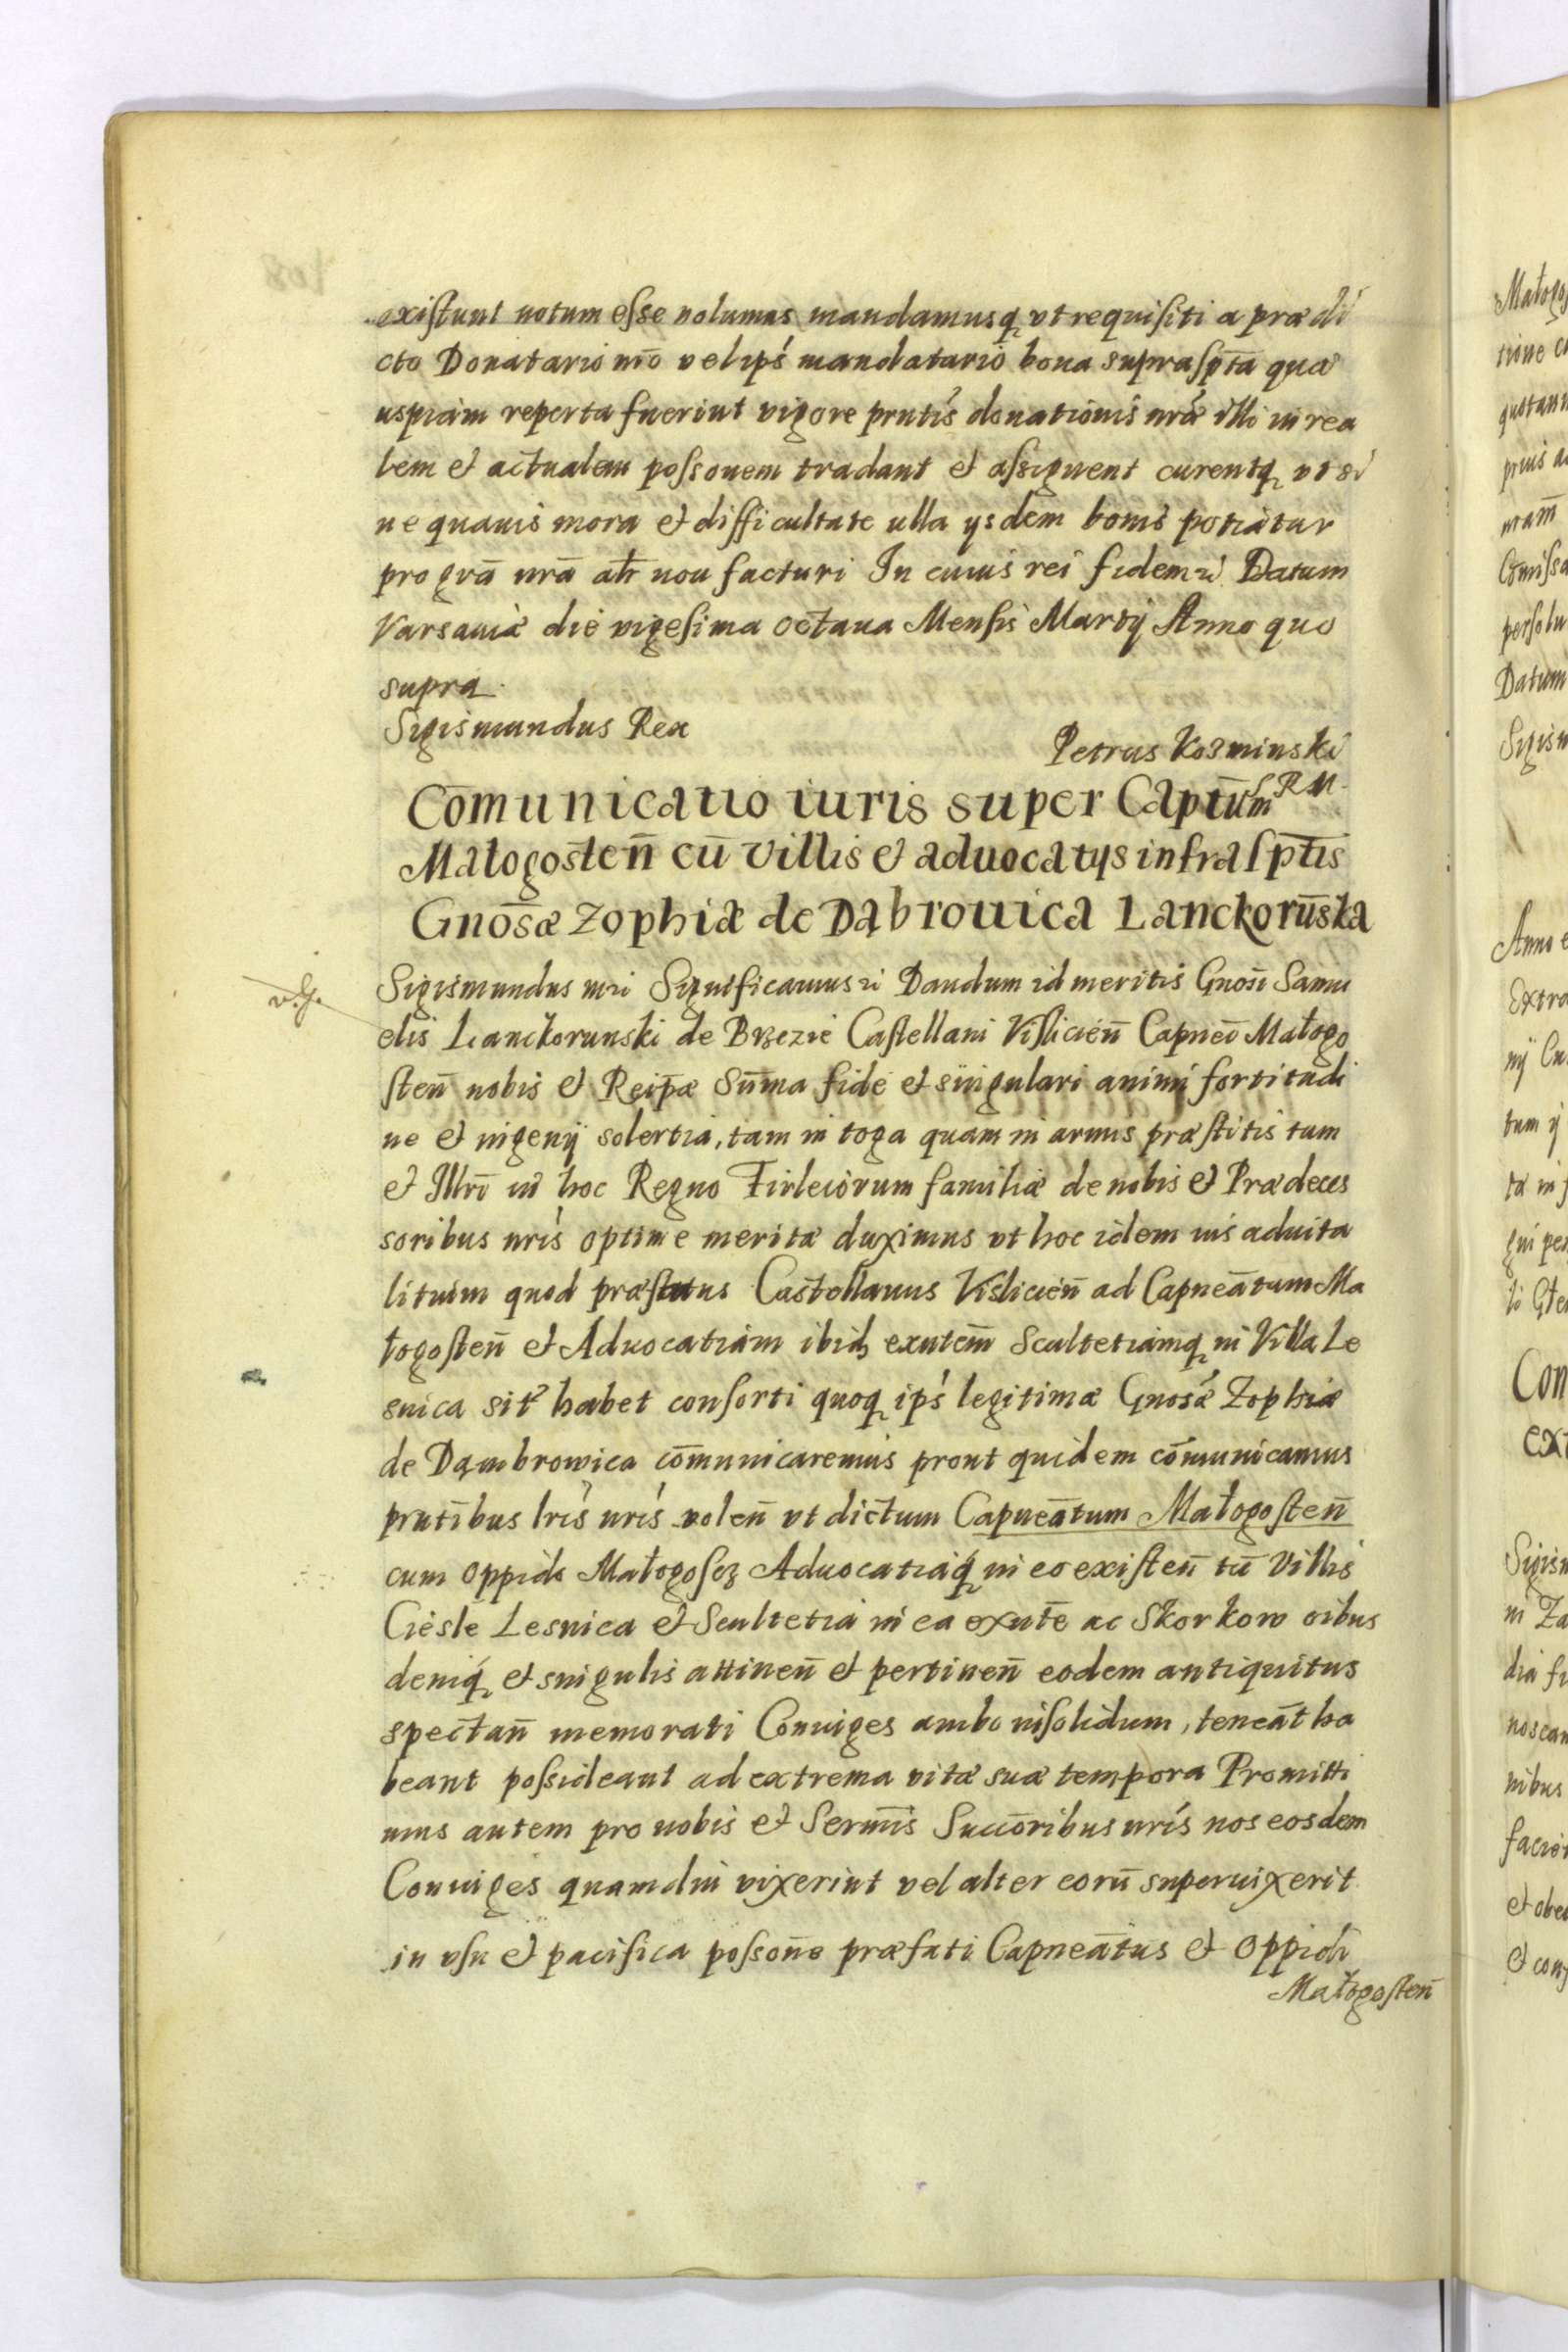 existunt notum esse volumus mandamusq vt requisiti a prædi
cto Donatario nrō vel ips̄ mandatario bona suprasp̄ta quæ
uspiam reperta fuerint vigore prntis donationis nræ illi in rea
lem et actualem possonem tradant et assignent curentq vt si
ne quauis mora et difficultate ulla ysdem bonis potiatur
pro grā nrā alr̄ non facturi In cuius rei fidem Datum
Varsauiæ die vigesima octaua Mensis Martij Anno quo
supra
Sigismundus Rex
Petrus Kosminski
S R M
Cōmunicatio iuris super Captūm
Małogosten̄ cū villis et aduocatijs infrasp̄tis
Gnosæ Zophiæ de Dąbrouica Lanckorūska
v.g.
Sigismundus Significamus Dandum id meritis Gnosi Samu
elis Lanckorunski de Brzezie Castellani Vislicien̄ Capnei Małogo
sten̄ nobis et Reipæ Sūma fide et singulari animi fortitudi
ne et ingenij solertia, tam in toga quam in armis præstitis tum
et Illri in hoc Regno Firleiorum familiæ de nobis et Prædeces
soribus nris optime meritæ duximus vt hoc idem ius aduita
litium quod præfatus Castellanus Vislicien̄ ad Capneātum Ma
łogosten̄ et Aduocatiam ibid exntem̄ Scultetiamq in Villa Le
snica sitā habet consorti quoq ips̄ legitimæ Gnosæ Zophiæ
de Dąmbrowica cōmunicaremus prout quidem cōmunicamus
prntibus lris nris volen̄ vt dictum Capneātum Małogosten̄
cum oppido Małogoscz Aduocatiaq in eo existen̄ tū Villis
Ciesle Lesnica et Scultetia in ea exntē ac Skorkow oibus
deniq et singulis attinen̄ et pertinen̄ eodem antiquitus
spectan̄ memorati Coniuges ambo insolidum, teneāt ha
beant possideant ad extrema vitæ suæ tempora Promitti
mus autem pro nobis et Sermis Succōribus nris nos eosdem
Coniuges quamdiu vixerint vel alter eorū superuixerit
in vsu et pacifica possone præfati Capneātus et Oppidi
Małogosten̄